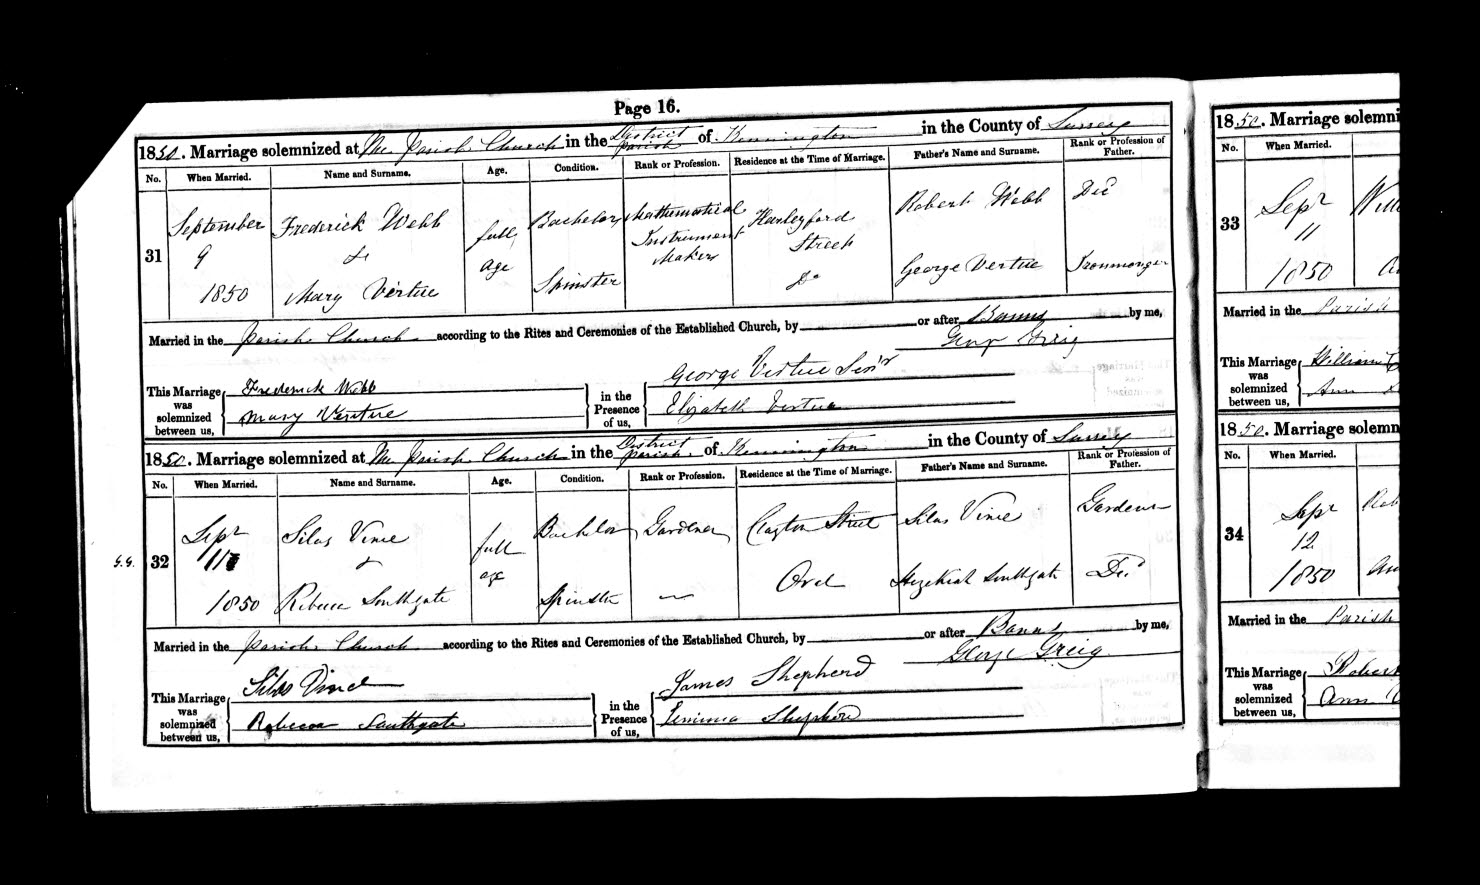 Page 16.
1850. Marriage solemnized at The Parish Church in the District Parish of Kennington in the County of Surrey
No. When Married. Name and Surname. Age. Condition. Rank or Profession. Residence at the Time of Marriage. Father's Name and Surname. Rank or Profession of Father.
31 September 9 1850
Frederick Webb
&
Mary Vertue
full age
Bachelor
Spinster
Mathematical Instrument Maker
Harleyford Street
Do
Robert Webb
George Vertue
Decd
Ironmonger
Married in the Parish Church according to the Rites and Ceremonies of the Established Church, by or after Banns by me,
George Greig
This Marriage was solemnized between us,
Frederick Webb
Mary Vertue
in the Presence of us,
George Vertue Senr
Elizabeth Vertue
1850. Marriage solemnized at The Parish Church in the District Parish of Kennington in the County of Surrey
No. When Married. Name and Surname. Age. Condition. Rank or Profession. Residence at the Time of Marriage. Father's Name and Surname. Rank or Profession of Father.
G.G. 32 Sepr 11 1850
Silas Vine
&
Rebecca Southgate
full age
Bachelor
Spinster
Gardener
Clayton Street
Oval
Silas Vine
Hezekiah Southgate
Gardener
Decd
Married in the Parish Church according to the Rites and Ceremonies of the Established Church, by or after Banns by me,
George Greig
This Marriage was solemnized between us,
Silas Vine
Rebecca Southgate
in the Presence of us,
James Shepherd
Jemima Shepherd
1850. Marriage solemni
No. When Married.
33 Sepr 11 1850
Will
Married in the Parish
This Marriage was solemnized between us,
William
Ann
1850. Marriage solemn
No. When Married.
34 Sepr 12 1850
Rob
Ann
Married in the Parish
This Marriage was solemnized between us,
Robert
Ann